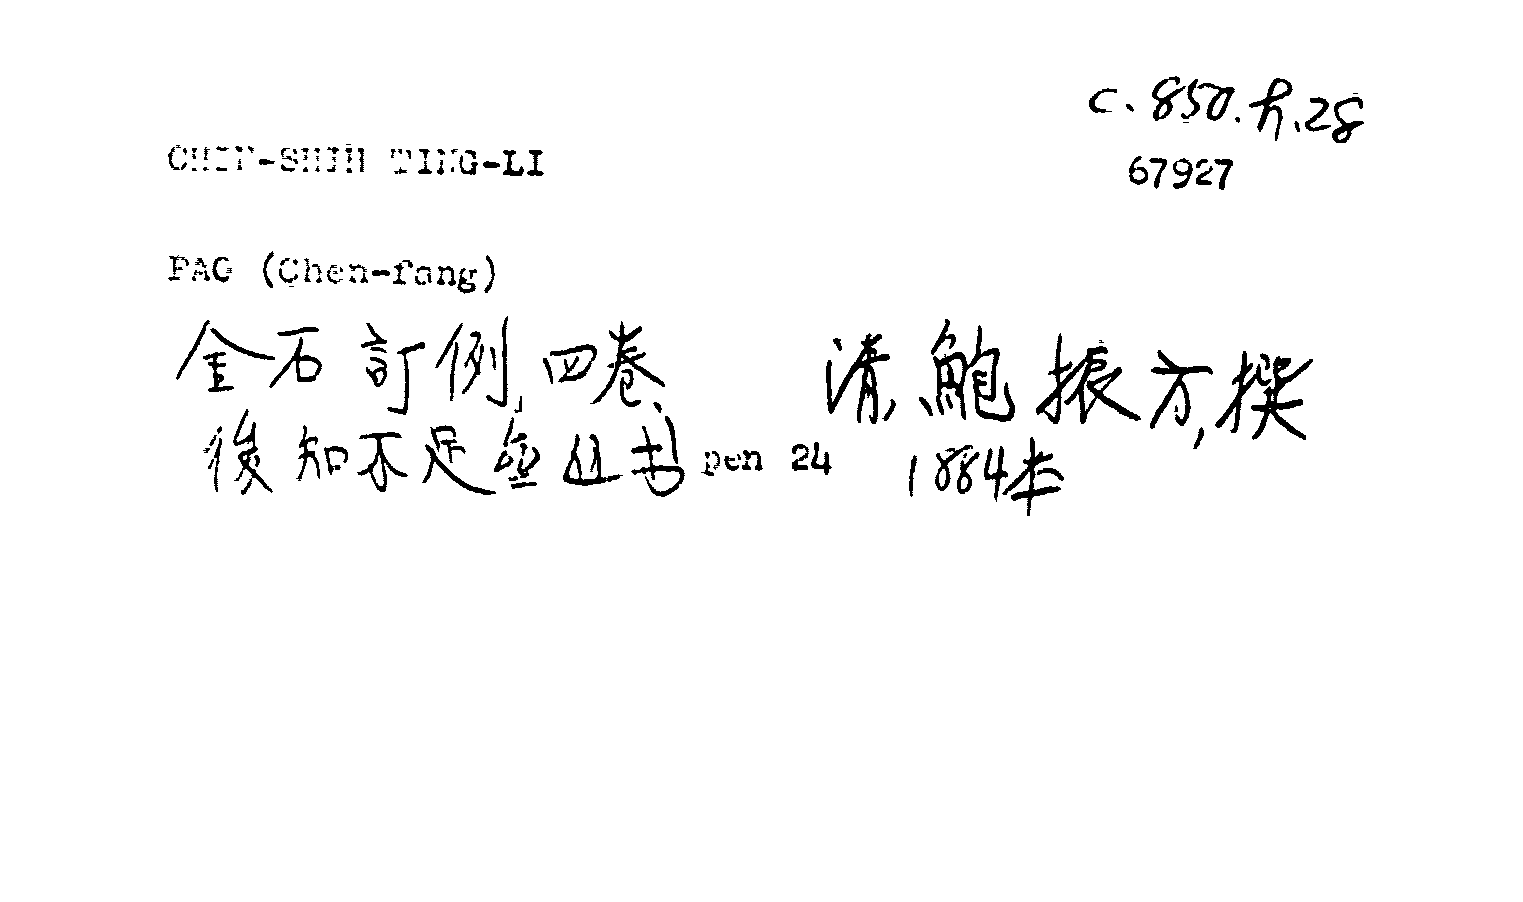 c.850.h.28
CHIN-SHIH TING-LI
67927
PAO (Chen-fang)
金石訂例,四卷、 清,鮑振方,撰
後知不足齋丛书 pen 24 1884本